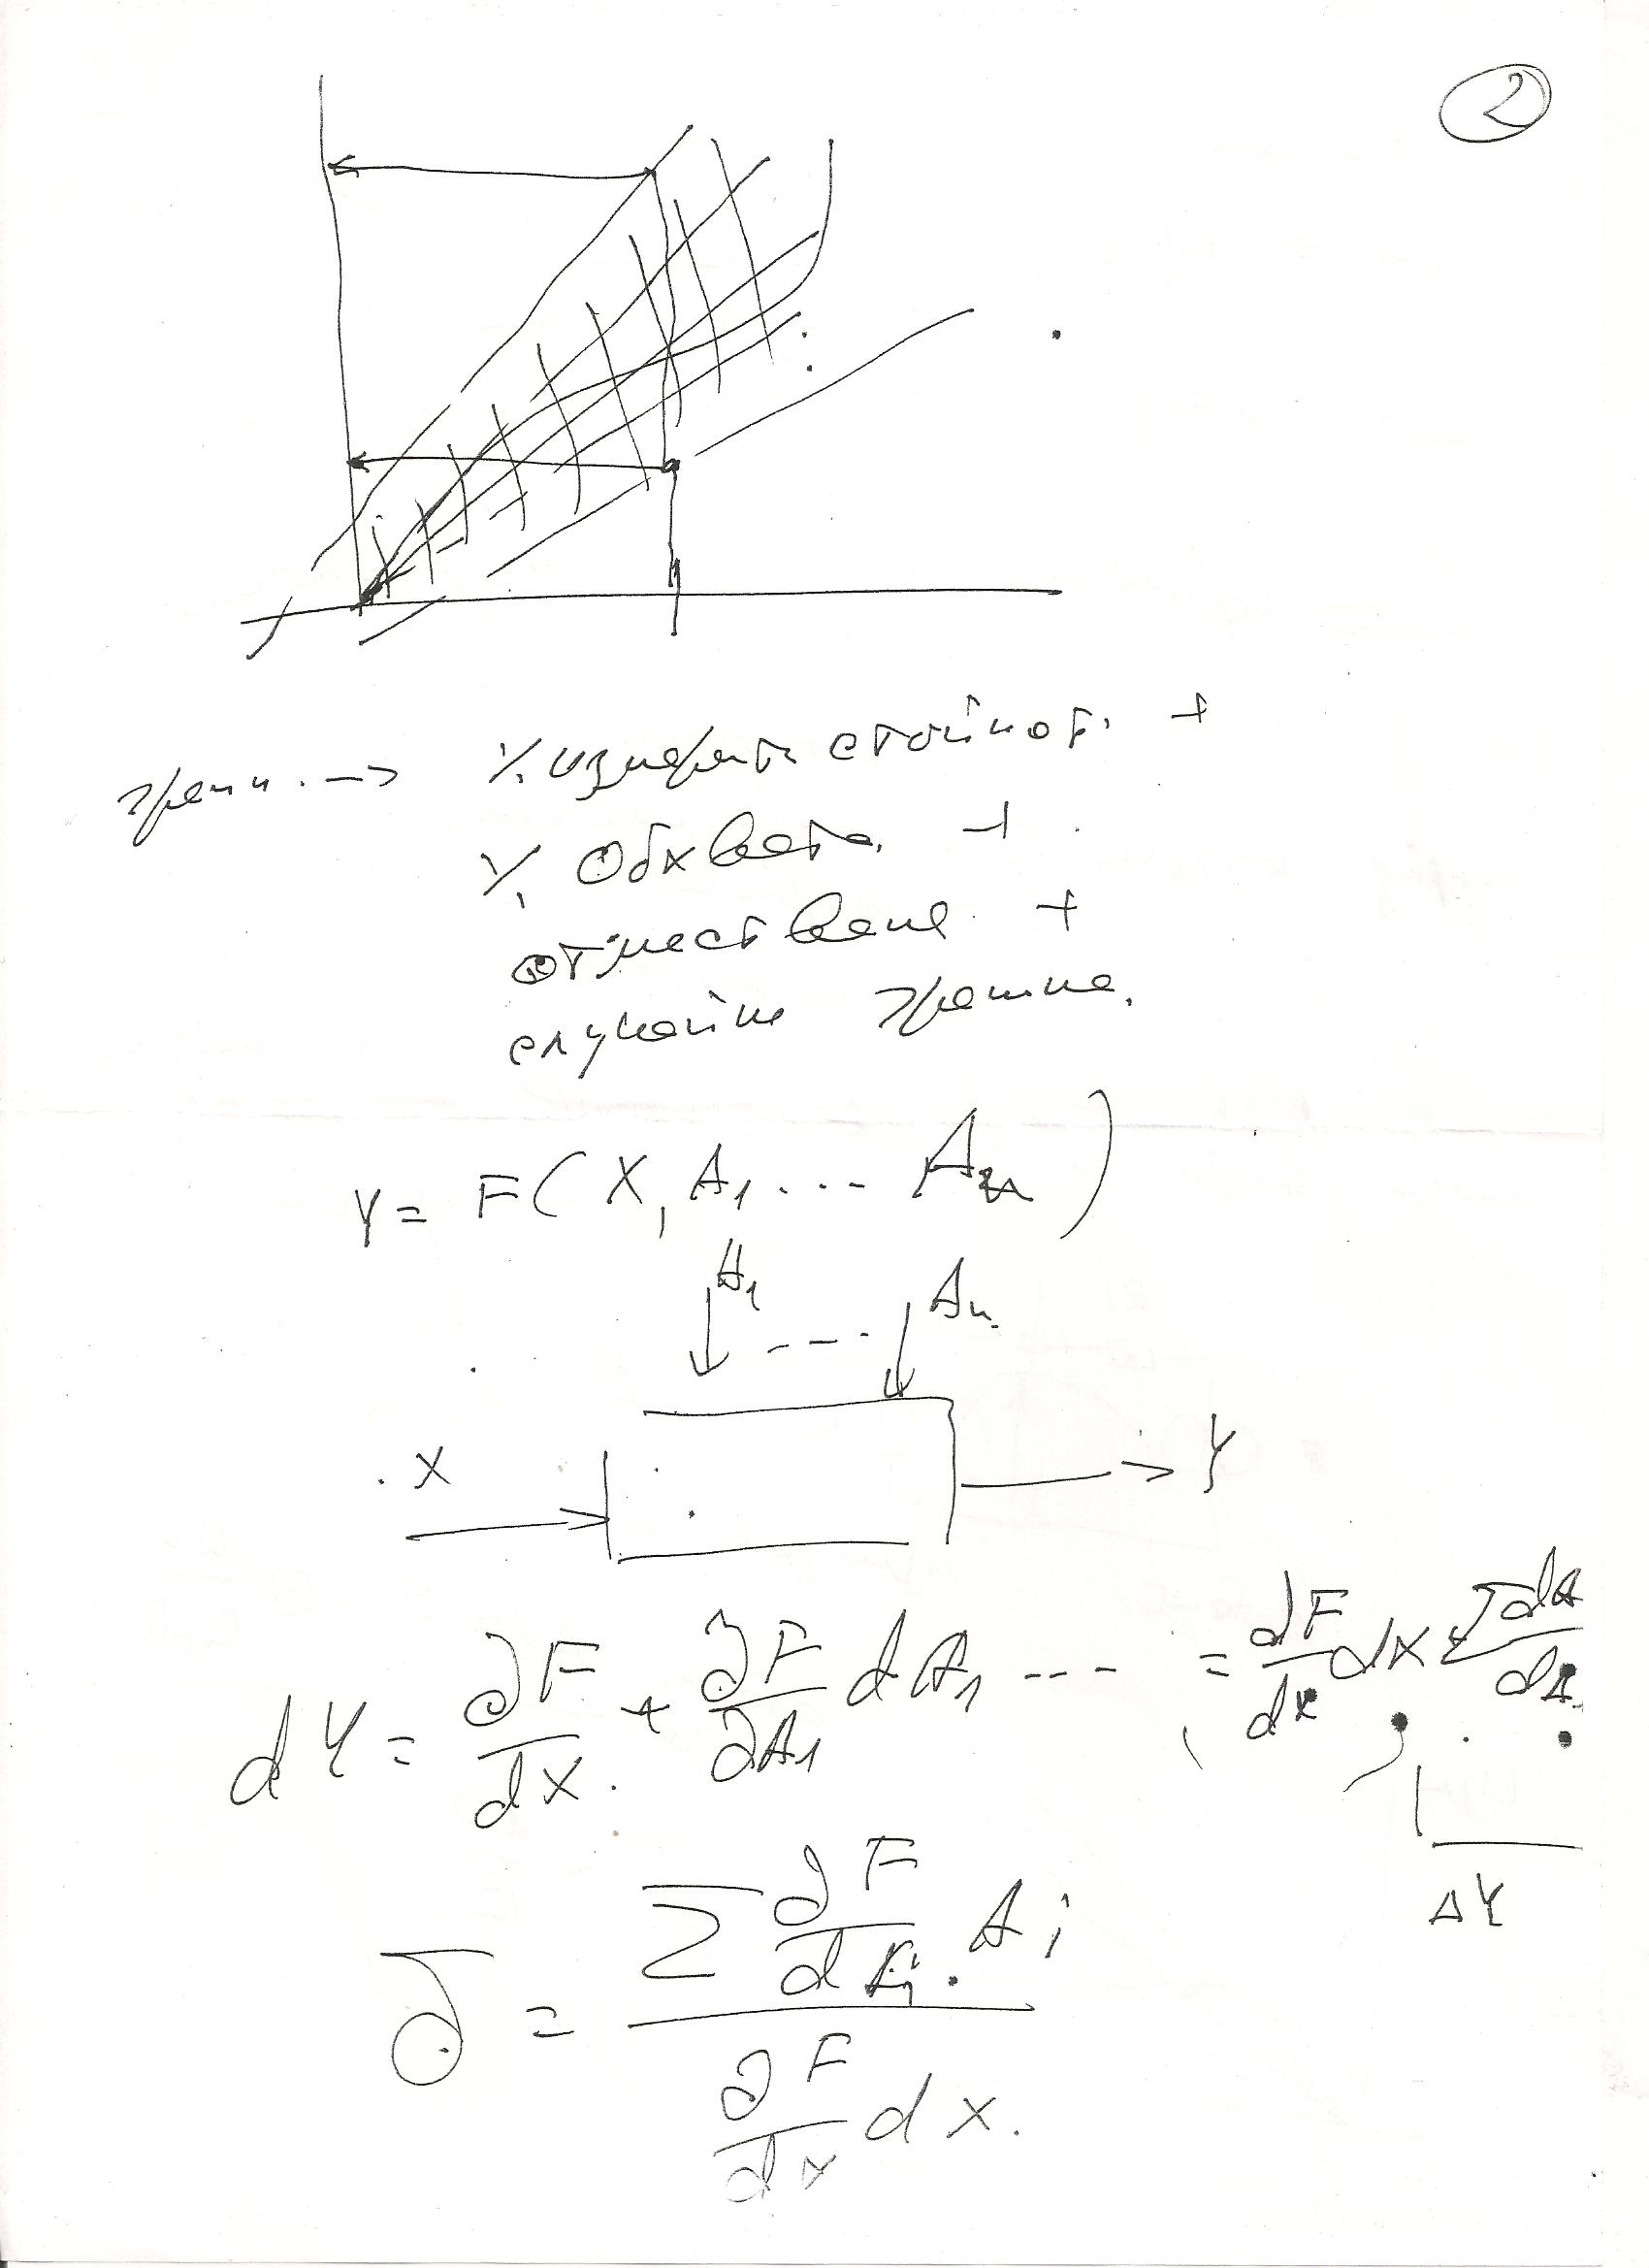 2
грешн. -> % измерената стойност. +
% Обхвата. +
отместване. +
случайни грешки.
Y = F(X, A₁ .... Aₙ)
A₁ ---- Aₙ
X Y
dY = ∂F/dX + ∂F/∂A₁ dA₁ --- = dF/dX dX
ΔY
δ = Σ ∂F/d . Ai / ∂F/dX dX.